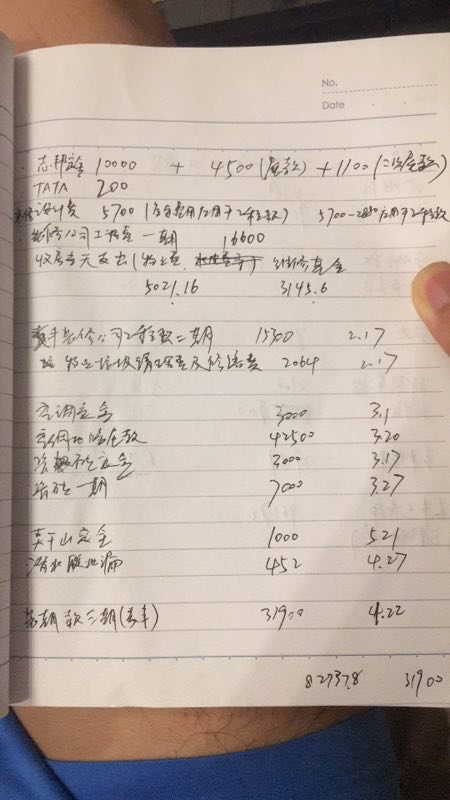 No.
Date
志邦定金 10000 + 4500(尾款) +1100(二次尾款)
TATA 200
装修设计费 5700 (后续应用于工程款) 5700
装修公司工程款 一期 16600
收房当天支出(物业费 维修基金
5021.16 3145.6
装修公司工程款二期 15300 2.17
物业垃圾清理费及 2064 2.17
空调定金 3000 3.1
空调地暖尾款 42500 3.20
定金 3000 3.17
一期 7000 3.27
莫干山定金 1000 5.21
潜水艇地漏 452 4.27
装修款三期 31900 4.22
82737.8 31900